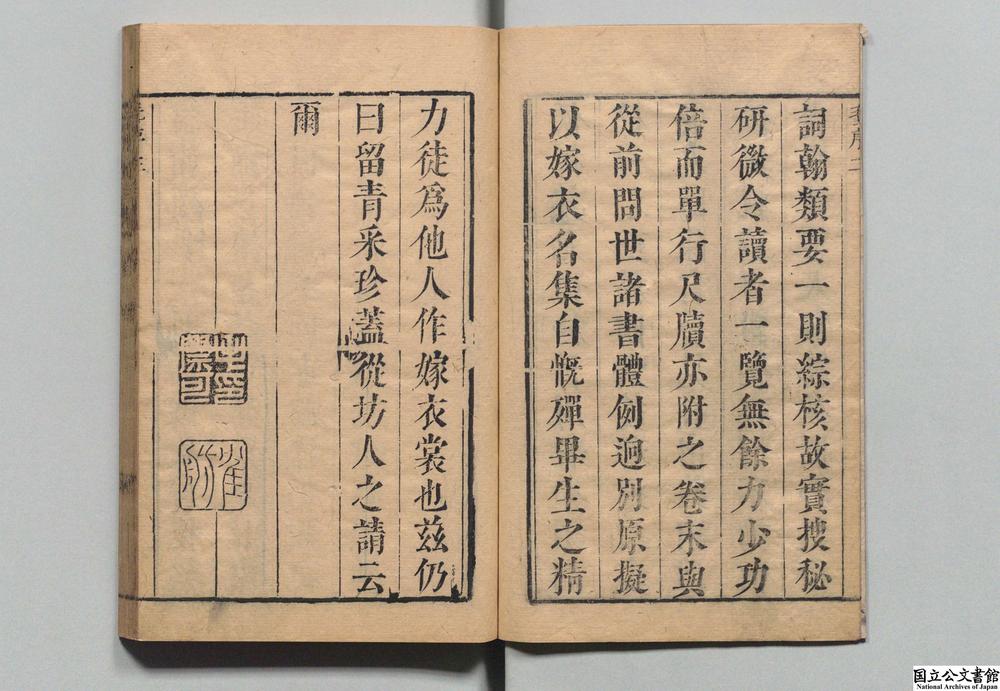 詞翰類要一則綜核故實搜秘
研微令讀者一覽無餘力少功
倍而單行尺牘亦附之卷末與
從前問世諸書體例迥別原擬
以嫁衣名集自慨殫畢生之精
力徒爲他人作嫁衣裳也茲仍
曰留青采珍蓋從坊人之請云
爾
国立公文書館
National Archives of Japan